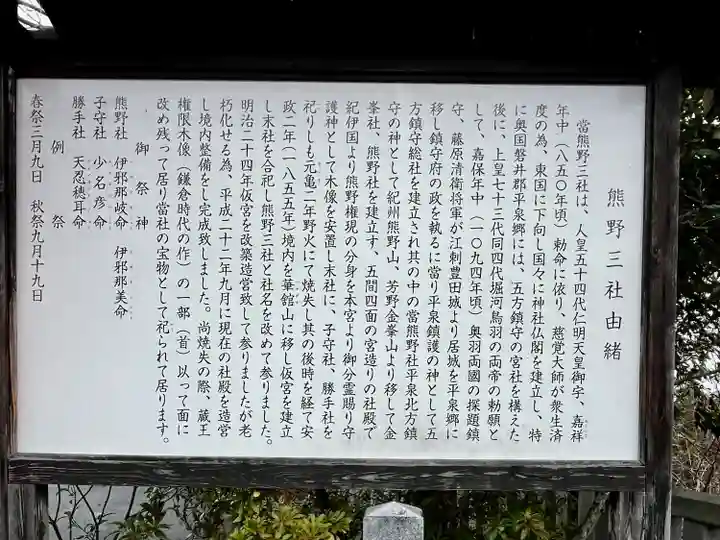 熊野三社由緒
當熊野三社は、人皇五十四代仁明天皇御宇、嘉祥
年中（八五〇年頃）勅命に依り、慈覚大師が衆生済
度の為、東国に下向し国々に神社仏閣を建立し、特
に奥国磐井郡平泉郷には、五方鎮守の宮社を構えた
後に、上皇七十三代同四代堀河鳥羽の両帝の勅願と
して、嘉保年中（一〇九四年頃）奥羽両國の探題鎮
守、藤原清衛将軍が江刺豊田城より居城を平泉郷に
移し鎮守府の政を執るに當り平泉鎮護の神として五
方鎮守総社を建立され其の中の當熊野社平泉北方鎮
守の神として紀州熊野山、芳野金峯山より移して金
峯社、熊野社を建立す、五間四面の宮造りの社殿で
紀伊国より熊野権現の分身を本宮より御分霊賜り守
護神として木像を安置し末社に、子守社、勝手社を
祀りしも元亀二年野火にて焼失し其の後時を経て安
政二年（一八五五年）境内を華館山に移し仮宮を建立
し末社を合祀し熊野三社と社名を改めて参りました。
明治二十四年仮宮を改築造営致して参りましたが老
朽化せる為、平成二十二年九月に現在の社殿を造営
し境内整備をし完成致しました。尚焼失の際、蔵王
権限木像（鎌倉時代の作）の一部（首）以って面に
改め残って居り當社の宝物として祀られて居ります。
御祭神
熊野社 伊邪那岐命 伊邪那美命
子守社 少名彦命
勝手社 天忍穂耳命
例祭
春祭三月九日 秋祭九月十九日